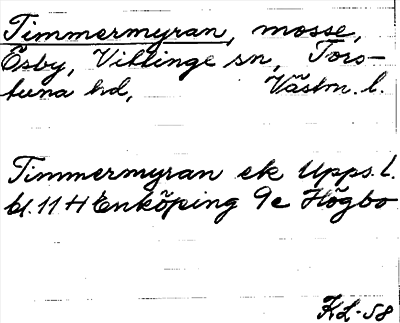 Timmermyran, mosse,
Esby, Vittinge sn, Tors-
tuna hd, Västm. l.
Timmermyran ek Upps. l.
bl. 11 H Enköping 9c Högbo
KL-58